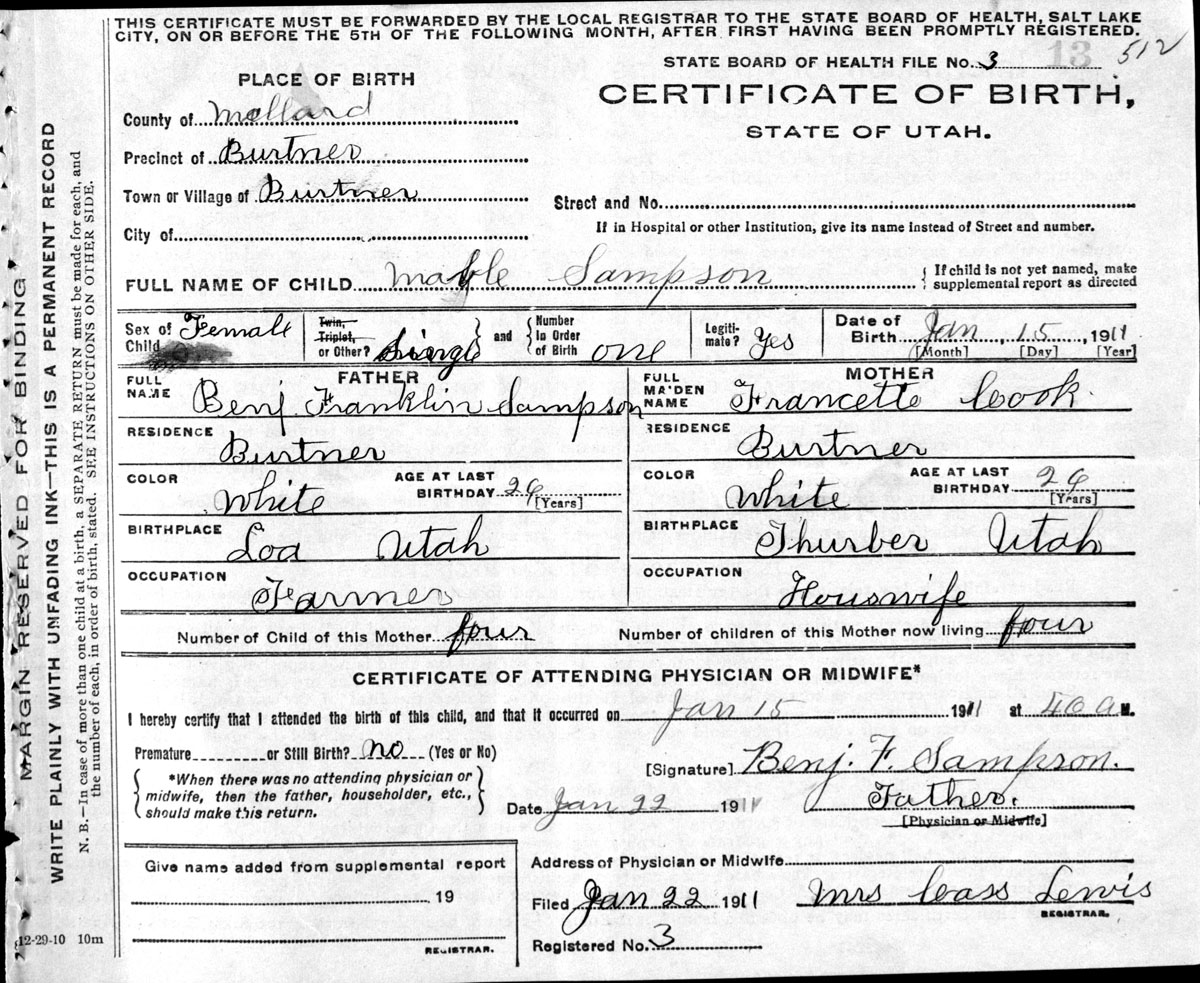 THIS CERTIFICATE MUST BE FORWARDED BY THE LOCAL REGISTRAR TO THE STATE BOARD OF HEALTH, SALT LAKE
CITY, ON OR BEFORE THE 5TH OF THE FOLLOWING MONTH, AFTER FIRST HAVING BEEN PROMPTLY REGISTERED.
512
STATE BOARD OF HEALTH FILE No. 3 13
PLACE OF BIRTH
CERTIFICATE OF BIRTH,
STATE OF UTAH.
County of Mellard
Precinct of Burtner
Town or Village of Burtner
Street and No.
City of
If in Hospital or other Institution, give its name instead of Street and number.
FULL NAME OF CHILD Mable Sampson { If child is not yet named, make
supplemental report as directed
Sex of Child Female
Twin, Triplet, or Other? Single } and { Number In Order of Birth one
Legiti-mate? Yes
Date of Birth Jan, 15, 1911
[Month] [Day] [Year]
FATHER
FULL NAME Benj. Franklin Sampson
RESIDENCE
Burtner
COLOR White AGE AT LAST BIRTHDAY 26 [Years]
BIRTHPLACE
Loa Utah
OCCUPATION
Farmer
MOTHER
FULL MAIDEN NAME Francette Cook
RESIDENCE
Burtner
COLOR White AGE AT LAST BIRTHDAY 26 [Years]
BIRTHPLACE
Thurber Utah
OCCUPATION
Houswife
Number of Child of this Mother four Number of children of this Mother now living four
CERTIFICATE OF ATTENDING PHYSICIAN OR MIDWIFE*
I hereby certify that I attended the birth of this child, and that it occurred on Jan 15 1911 at A M.
Premature or Still Birth? no (Yes or No)
*When there was no attending physician or
midwife, then the father, householder, etc.,
should make this return.
[Signature] Benj. F. Sampson.
Date Jan 22 1911 Father.
[Physician or Midwife]
Give name added from supplemental report
19
REGISTRAR.
Address of Physician or Midwife
Filed Jan 22 1911 Mrs Cass Lewis
REGISTRAR.
Registered No. 3
MARGIN RESERVED FOR BINDING
WRITE PLAINLY WITH UNFADING INK—THIS IS A PERMANENT RECORD
N. B.—In case of more than one child at a birth, a SEPARATE RETURN must be made for each, and
the number of each, in order of birth, stated. SEE INSTRUCTIONS ON OTHER SIDE.
12-29-10 10m